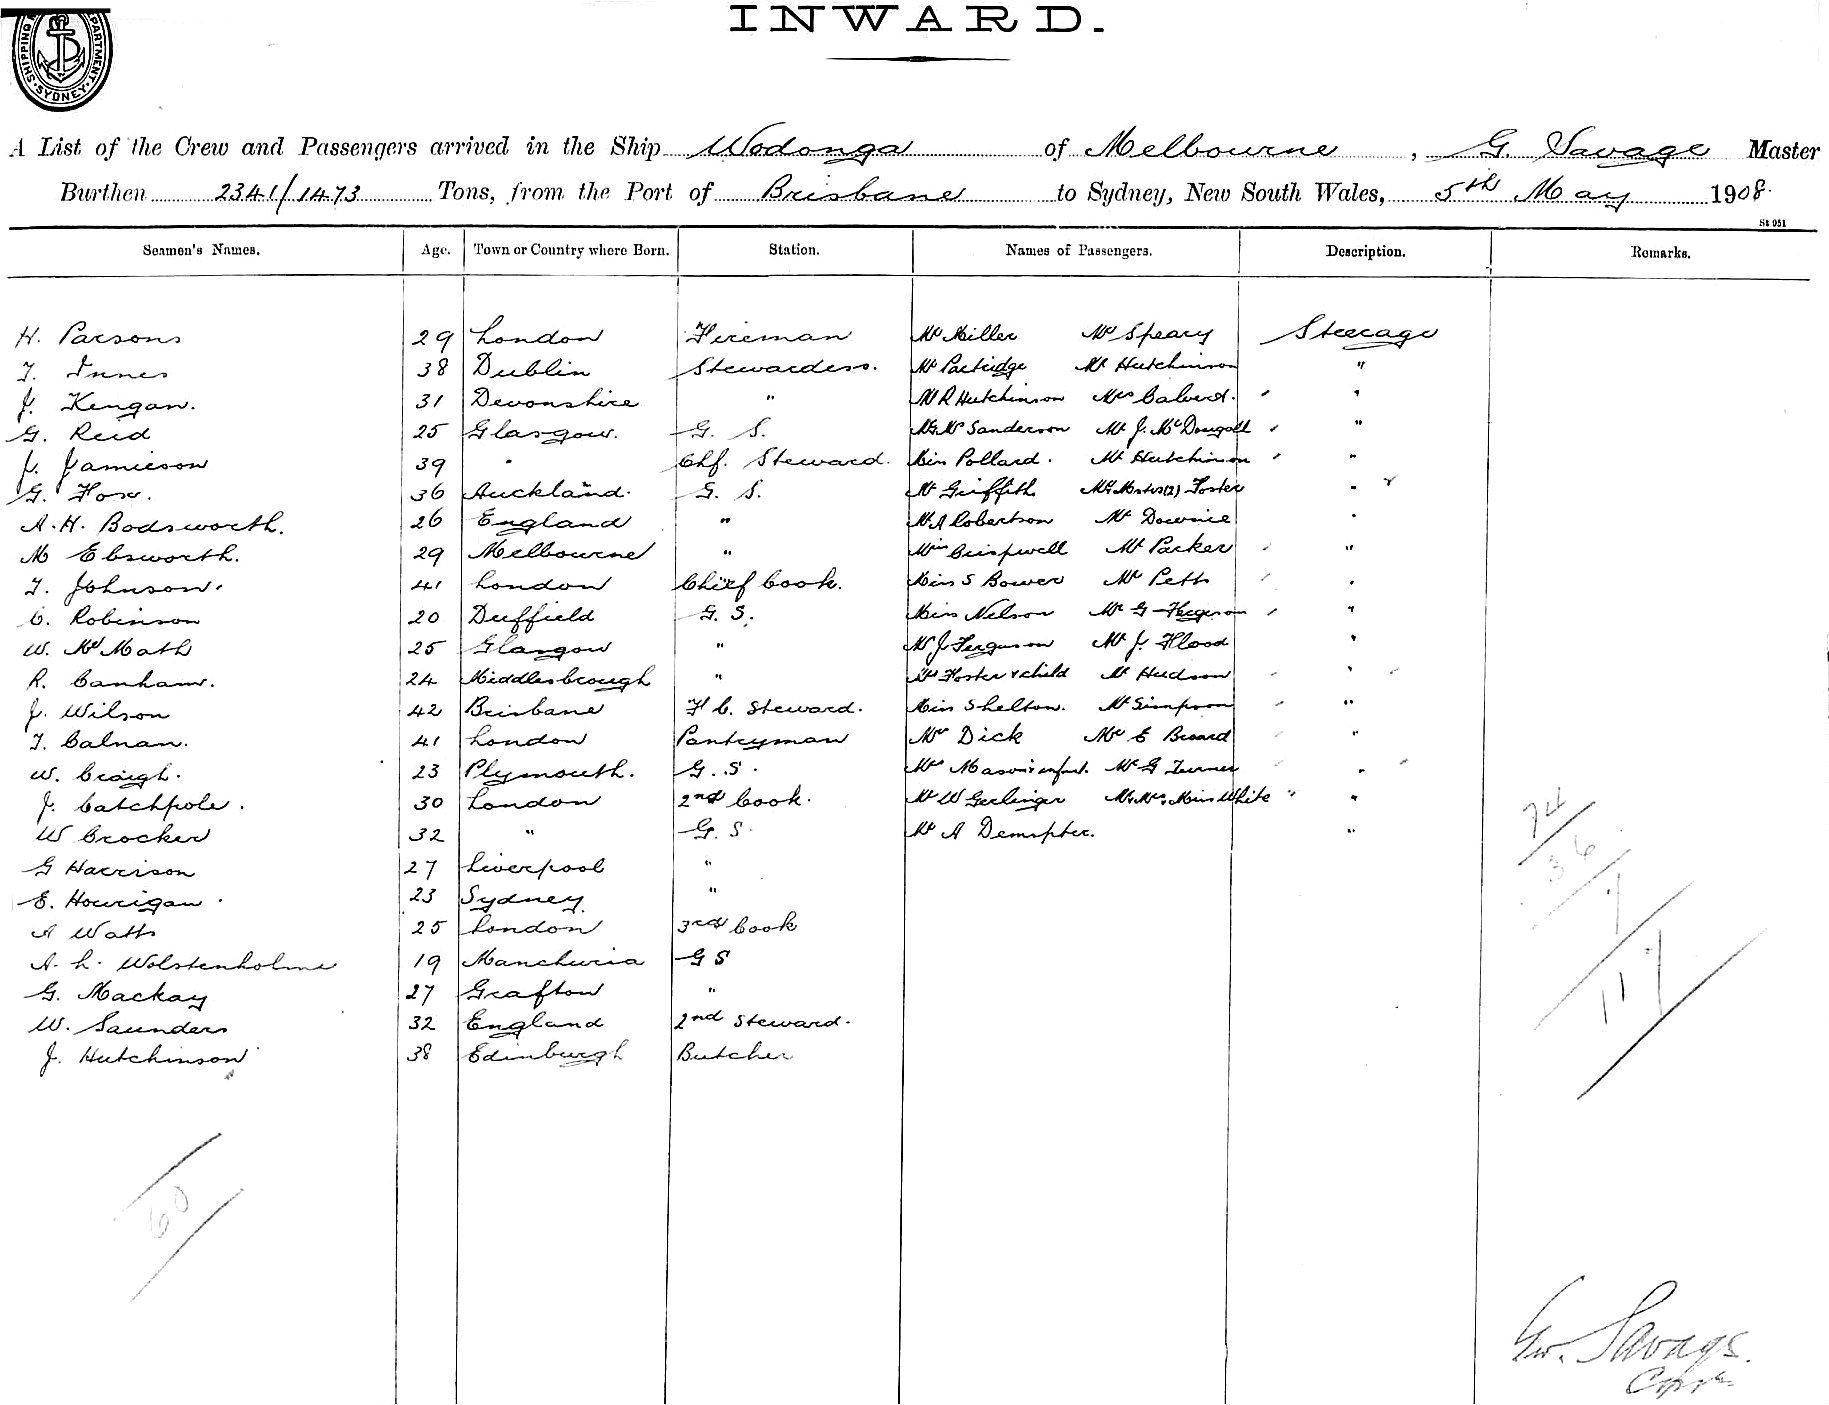 INWARD.
SHIPPING DEPARTMENT. SYDNEY
A List of the Crew and Passengers arrived in the Ship Wodonga of Melbourne, G. Savage Master
Burthen 2341/1473 Tons, from the Port of Brisbane to Sydney, New South Wales, 5th May 1908.
St 051
Seamen's Names. Age. Town or Country where Born. Station. Names of Passengers. Description. Remarks.
H. Parsons 29 London Fireman Mr Miller Mr Speary Steerage
T. Innes 38 Dublin Stewardess. Mr Partridge Mr Hutchinson "
J. Kengan. 31 Devonshire " Mr R Hutchinson Mrs Calverd. "
G. Reid 25 Glasgow. G. S. Mr & Mrs Sanderson Mr J. McDougall "
J. Jamieson 39 " Chf. Steward. Miss Pollard. Mr Hutchinson "
G. Fox. 36 Auckland. G. S. Mr Griffith Foster "
A. H. Bodsworth. 26 England " Mr A Robertson Mr Downie "
M Ebsworth. 29 Melbourne " Miss Crispwell Mr Parker "
T. Johnson. 41 London Chief Cook. Miss S Bower Mr Petts "
C. Robinson 20 Duffield G. S. Miss Nelson Mr G Ferguson "
W. McMath 25 Glasgow " Mr J Ferguson Mr J. Flood "
R. Canham. 24 Middlesbrough " Mrs Foster & child Mr Hudson "
J. Wilson 42 Brisbane F. C. Steward. Miss Shelton. Mr Simpson "
T. Calnan. 41 London Pantryman Mr Dick Mr E Broard "
W. Craigh. 23 Plymouth. G. S. Mrs Mason & infant. Mr G Turner "
J. Catchpole. 30 London 2nd Cook. Mr W Gerlinger Mr, Mrs, Miss White "
W Crocker 32 " G. S. Mr A Dempster. "
G Harrison 27 Liverpool "
E. Hourigan. 23 Sydney "
A Watts 25 London 3rd Cook
A. L. Wolstenholme 19 Manchuria G S
G. Mackay 27 Grafton "
W. Saunders 32 England 2nd Steward.
J. Hutchinson 38 Edinburgh Butcher
74
36
7
117
60
Geo. Savage.